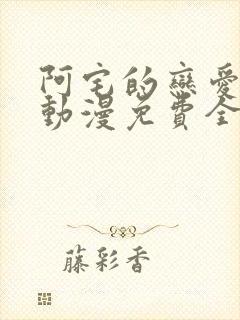 阿宅的戀愛
動漫免費全
藤彩香